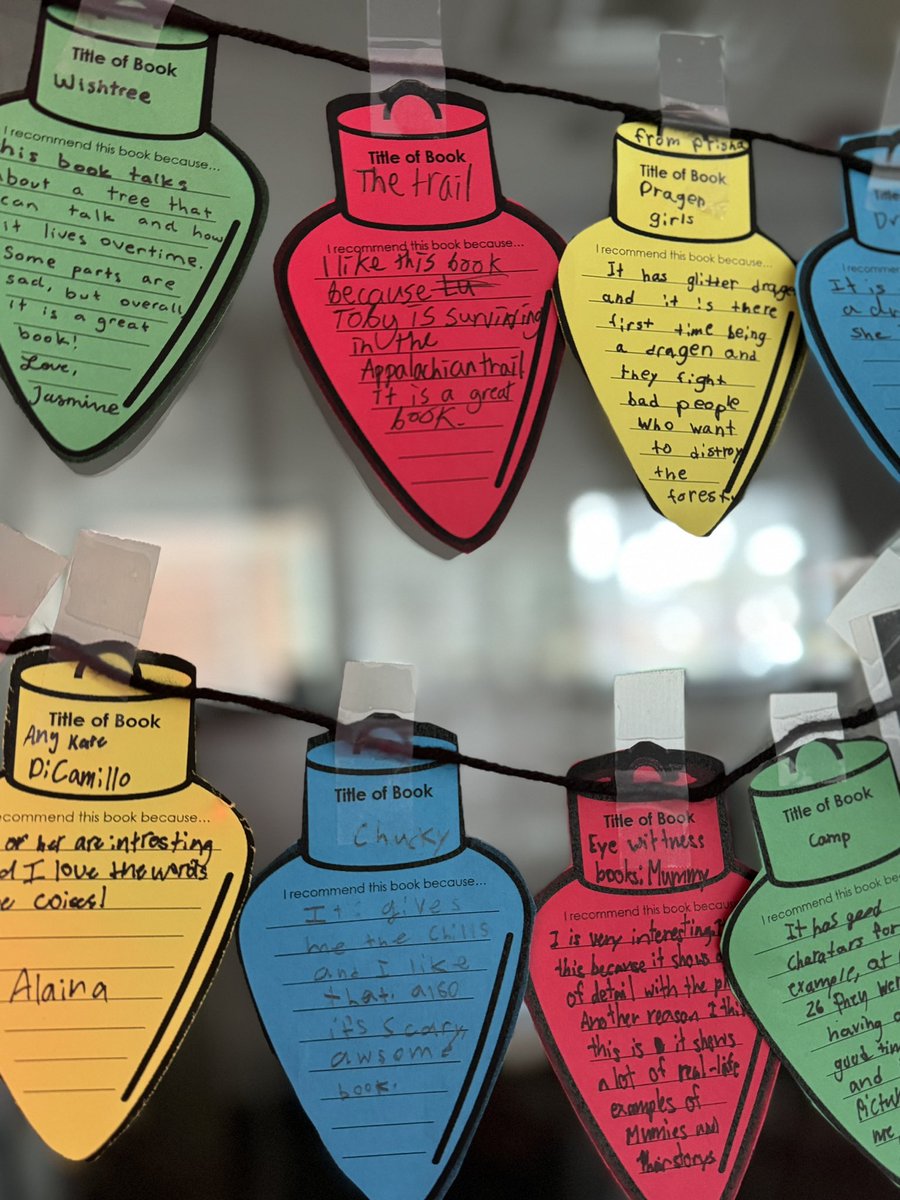 Title of Book
Wishtree
I recommend this book because...
his book talks
about a tree that
can talk and how
it lives overtime.
Some parts are
sad, but overall
it is a great
book!
Love,
Jasmine
Title of Book
The trail
I recommend this book because...
I like this book
because
Toby is surviving
in the
Appalachian trail
It is a great
book.
from prisha
Title of Book
Dragen
girls
I recommend this book because...
It has glitter drage
and it is there
first time being
a dragen and
they fight
bad people
who want
to distroy
the
forest.
Dr
I recommend
It is
a dr
she
Title of Book
Any Kate
DiCamillo
recommend this book because...
or her are introsting
d I love the words
e coices!
Alaina
Title of Book
Chucky
I recommend this book because...
It gives
me the chills
and I like
that. also
it's scary,
awsome
book.
Title of Book
Eye wittness
books: Mummy
I recommend this book becau
I is very interesting.
this because it shows
of detail with the
Another reason I
this is it shows
a lot of real-life
examples of
Mumies and
their storys
Title of Book
Camp
I recommend this book be
It has good
charatars for
example, at
26 they wer
having a
good tim
and
Pictur
me,